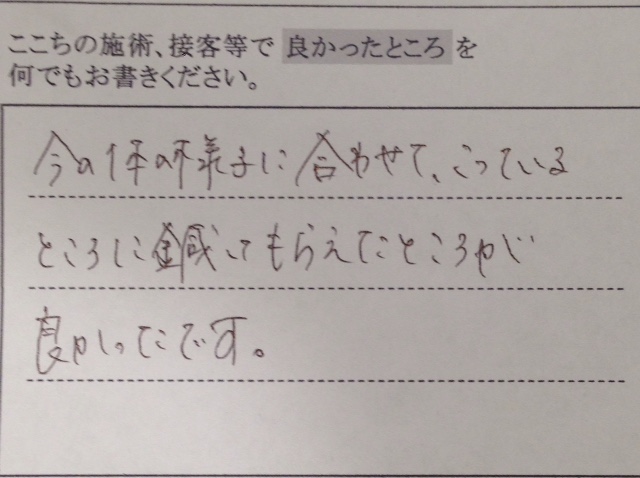 ここちの施術、接客等で 良かったところ を
何でもお書きください。
今の体の様子に合わせて、こっている
ところに鍼してもらえたところが
良かったです。